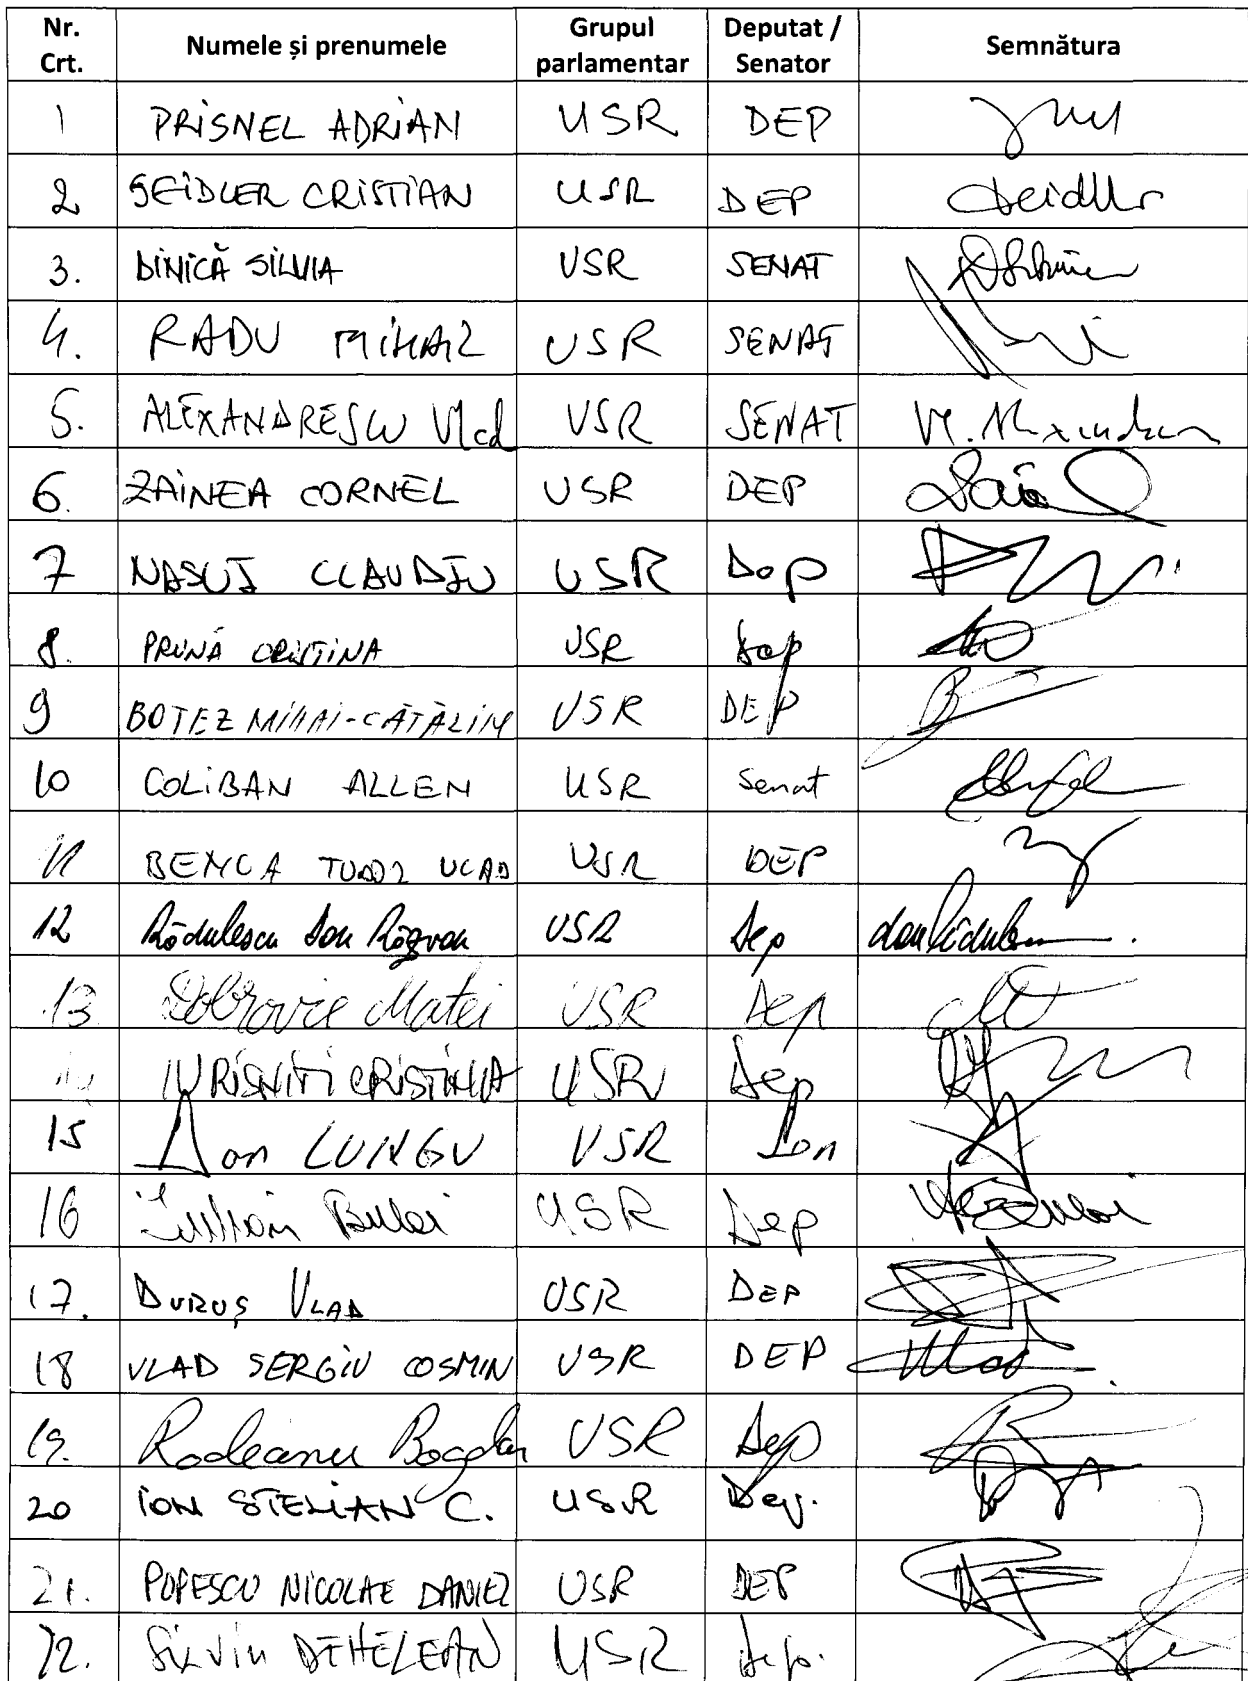 Nr. Crt. Numele și prenumele Grupul parlamentar Deputat / Senator Semnătura
1 PRISNEL ADRIAN USR DEP
2 SEIDLER CRISTIAN USR DEP Seidler
3. DINICĂ SILVIA USR SENAT
4. RADU MIHAIL USR SENAT
5. ALEXANDRESCU Vlad USR SENAT
6. ZAINEA CORNEL USR DEP
7 NASUI CLAUDIU USR Dep
8. PRUNĂ CRISTINA USR Dep
9 BOTEZ MIHAI-CĂTĂLIN USR DEP
10 COLIBAN ALLEN USR Senat
11 BENGA TUDOR VLAD USR DEP
12 Rădulescu Dan Răzvan USR Dep
13 Dobrovie Matei USR Dep
14 IURISNITI CRISTINA USR Dep
15 Dan LUNGU USR
16 Iulian Bulai USR Dep
17. DURUȘ VLAD USR DEP
18 VLAD SERGIU COSMIN USR DEP
19. Rodeanu Bogdan USR Dep
20 ION STELIAN C. USR Dep.
21. POPESCU NICOLAE DANIEL USR DEP
22. SILVIU DEHELEAN USR Dep.